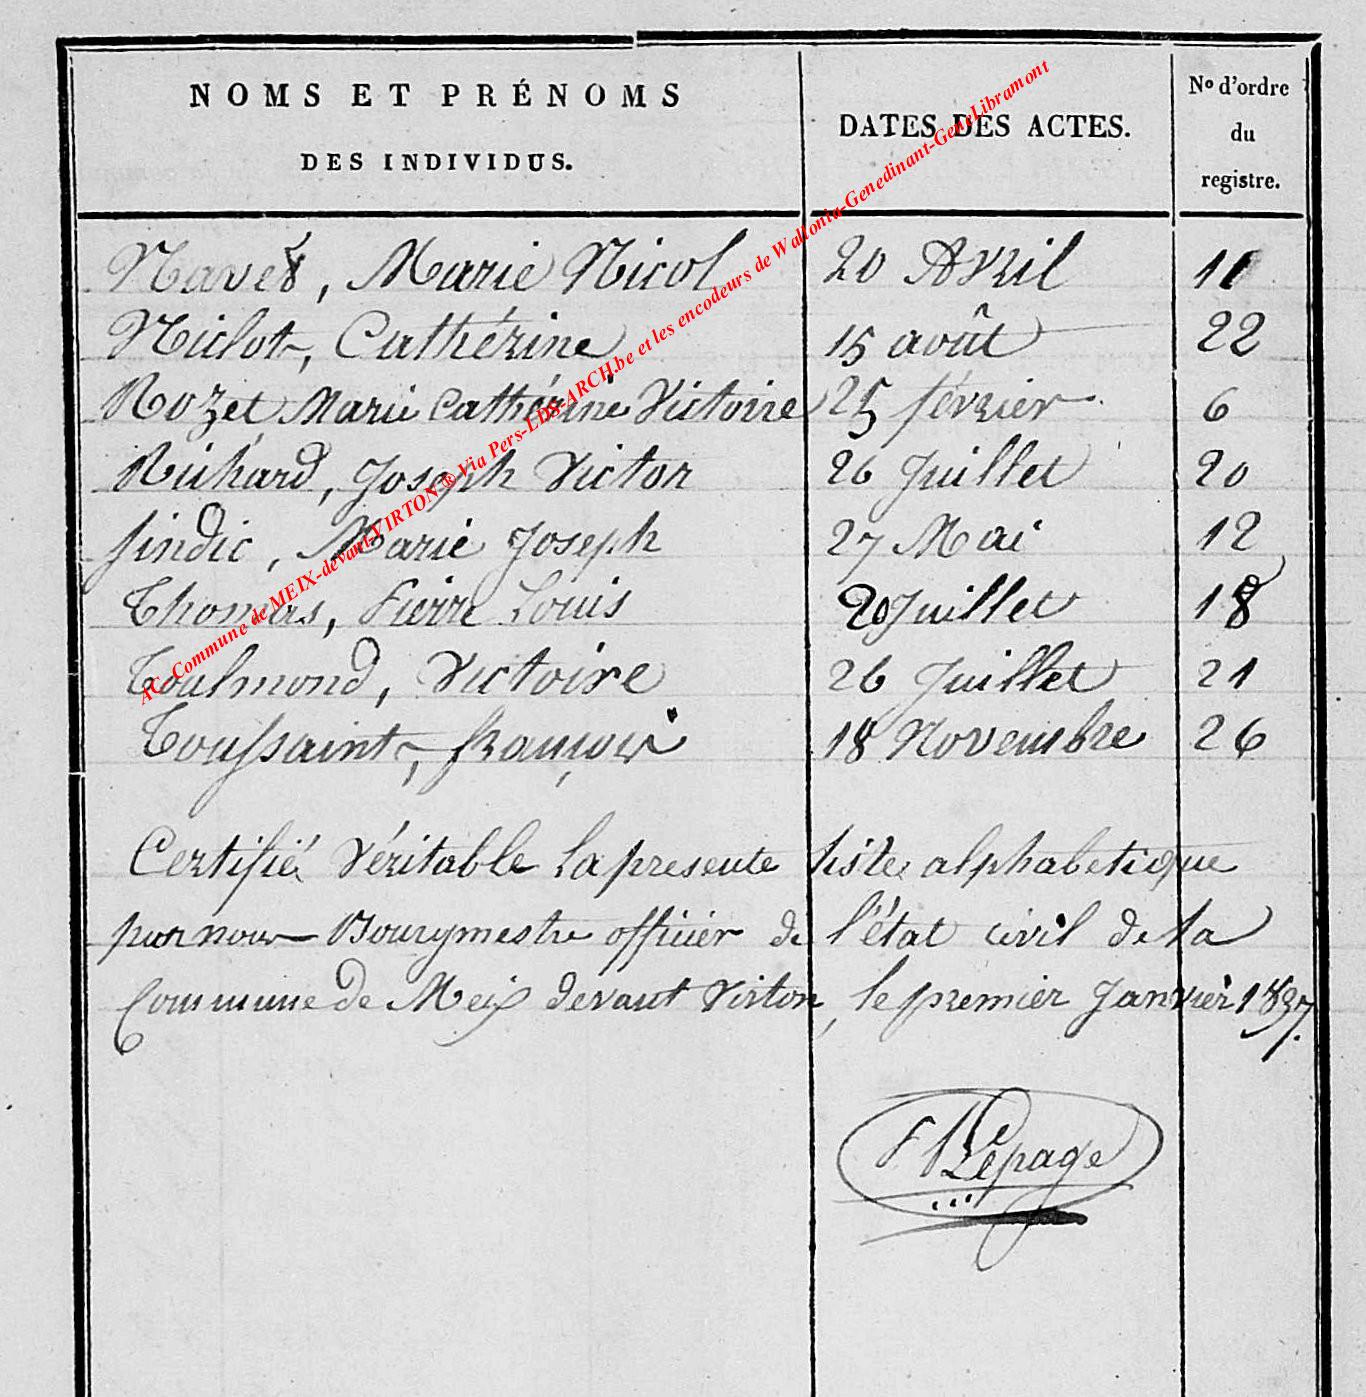 NOMS ET PRÉNOMS
DES INDIVIDUS.
DATES DES ACTES.
No d'ordre
du
registre.
Marie Nicol 20 Avril 10
Niclot, Cathérine 15 août 22
Rozet Marie Cathérine Victoire 25 février 6
Richard, Joseph Victor 26 Juillet 20
Sindic, Marie Joseph 27 Mai 12
Thomas, Pierre Louis 20 Juillet 18
Toulmond, Victoire 26 Juillet 21
Toussaint, françois 18 Novembre 26
Certifié Véritable la presente liste alphabetique
par nous Bourgmestre officier de l'état civil de la
Commune de Meix devant Virton, le premier Janvier 1837.
Lepage
AC-Commune de MEIX-devant-VIRTON ® Via Pers-LDS-ARCH.be et les encodeurs de Wallonia-Genedinant-GeneLibramont